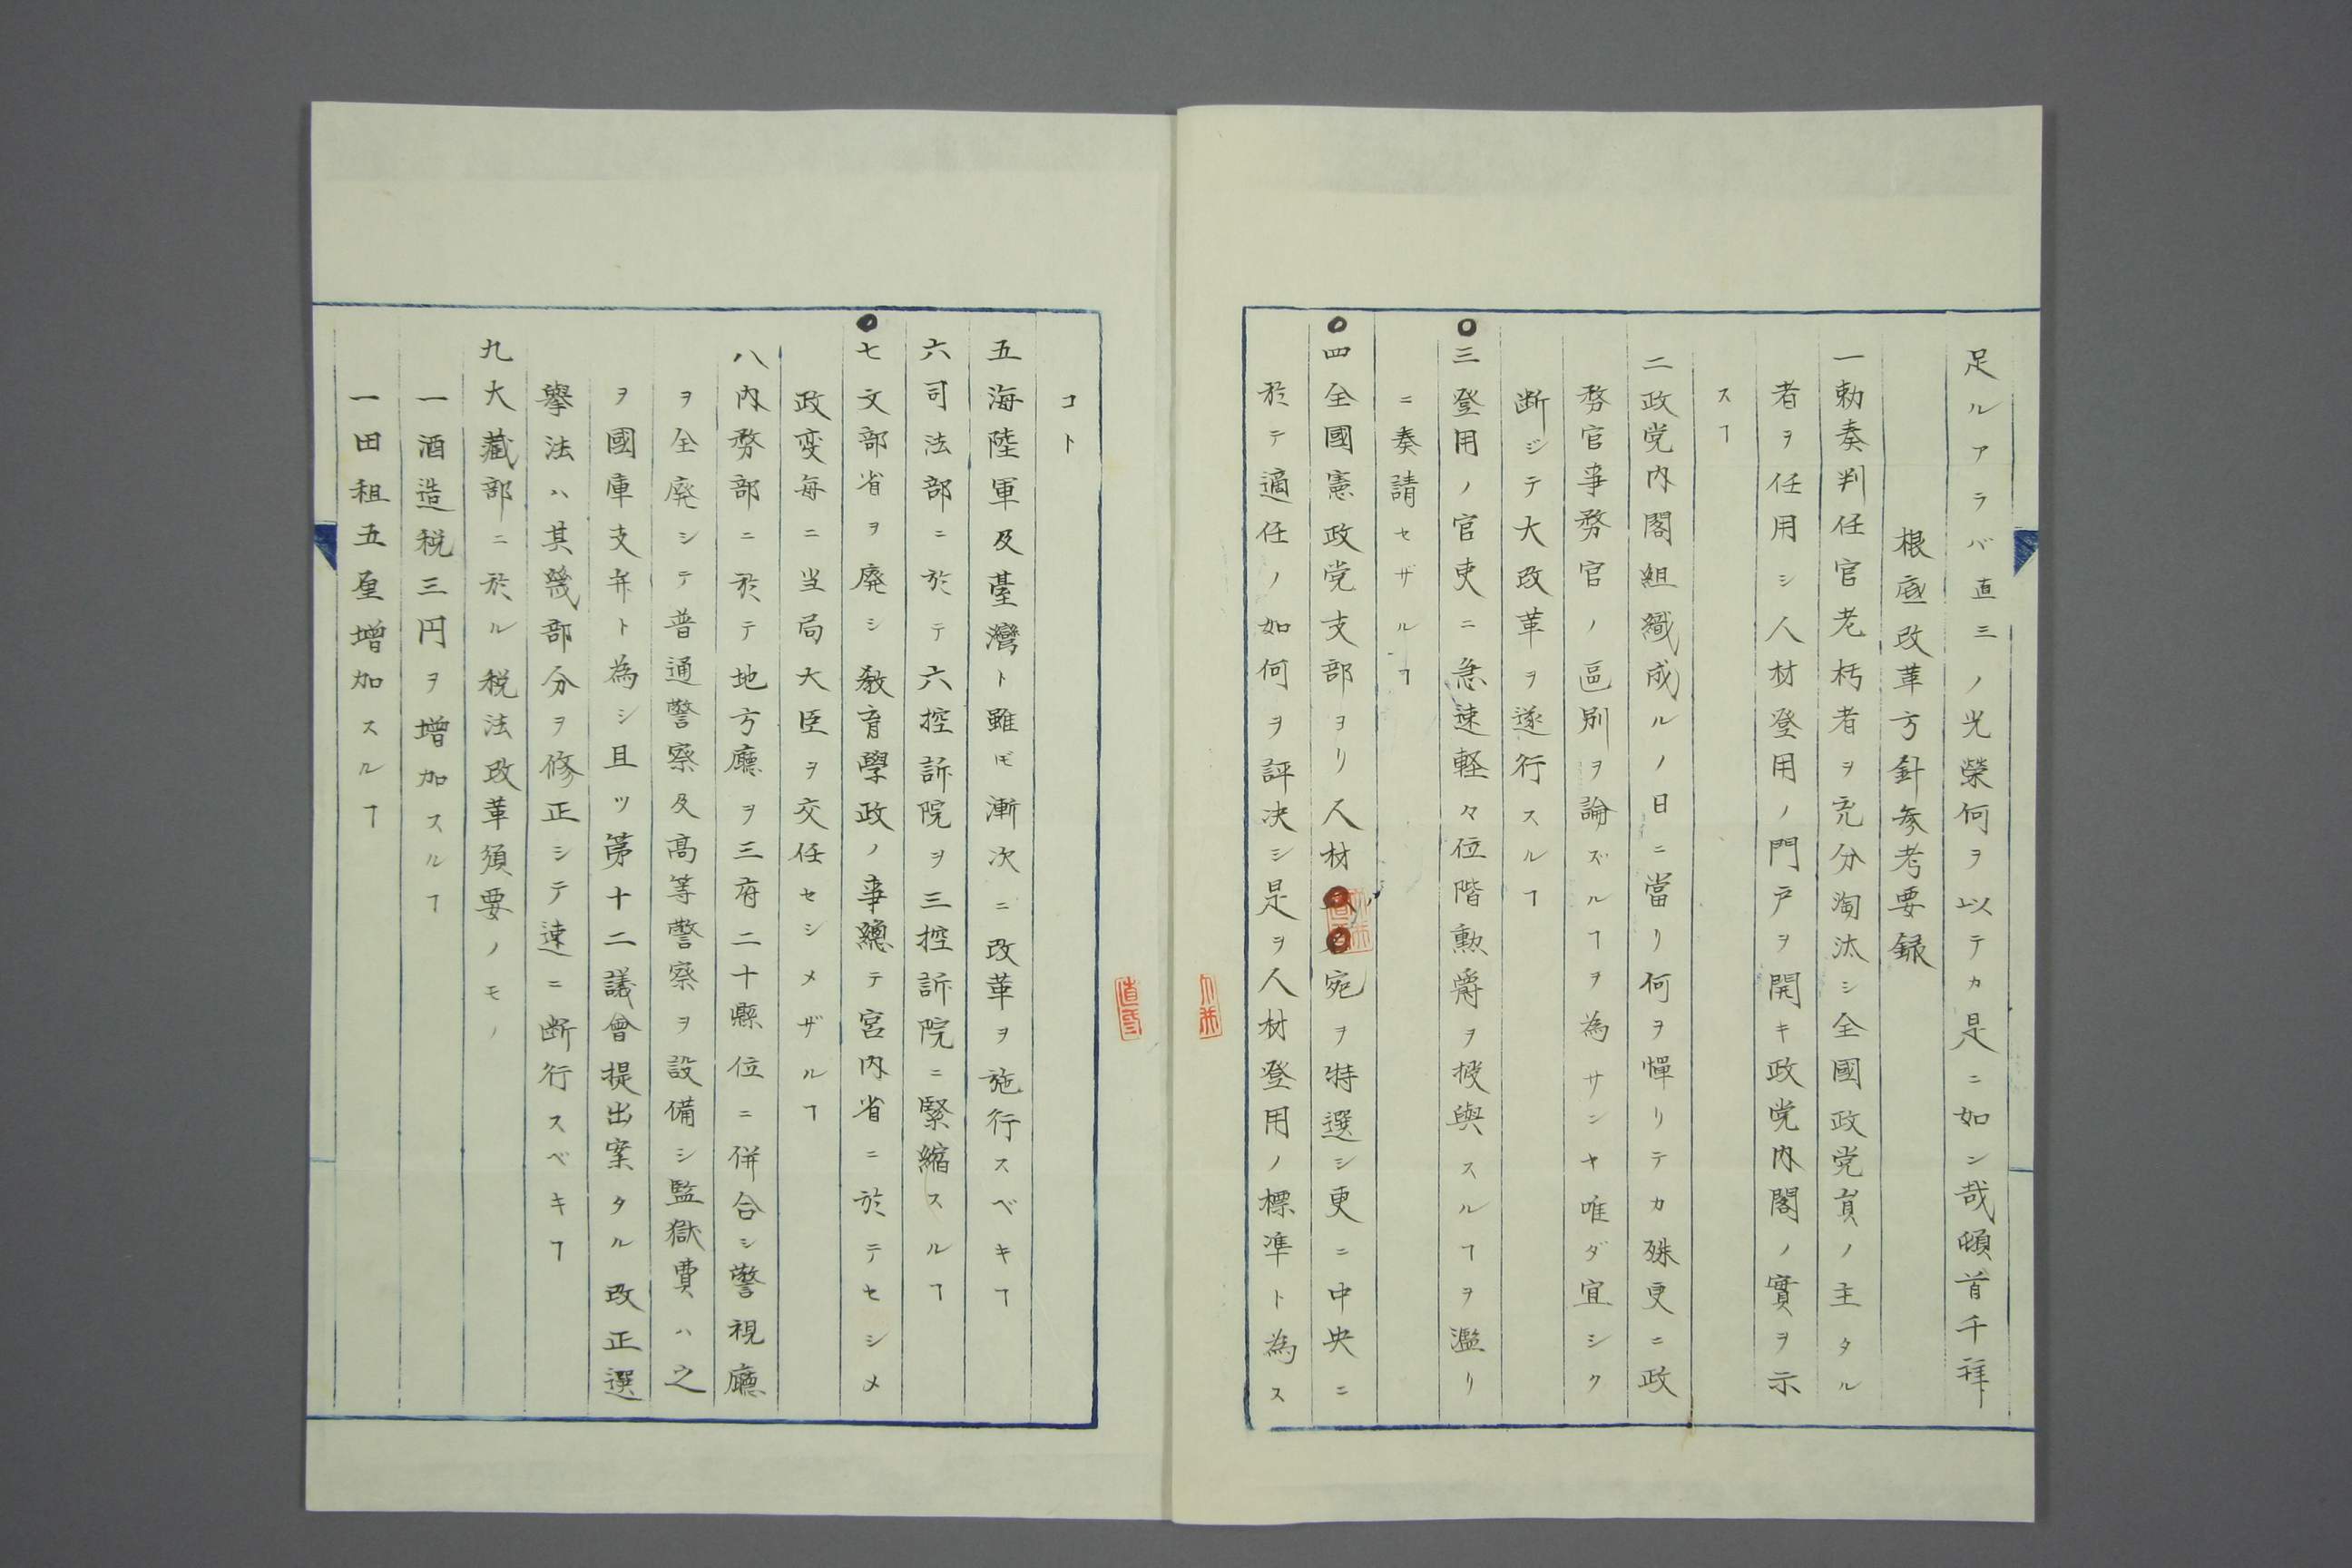 足ルアラバ直三ノ光榮何ヲ以テカ是ニ如ン哉頓首千拜
根底改革方針参考要録
一勅奏判任官老朽者ヲ充分淘汰シ全國政党員ノ主タル
者ヲ任用シ人材登用ノ門戸ヲ開キ政党内閣ノ實ヲ示
スヿ
二政党内閣組織成ルノ日ニ當リ何ヲ憚リテカ殊更ニ政
務官事務官ノ區別ヲ論ズルヿヲ為サンヤ唯ダ宜シク
断ジテ大改革ヲ遂行スルヿ
三登用ノ官吏ニ急速軽々位階勲爵ヲ授與スルヿヲ濫リ
ニ奏請セザルヿ
四全國憲政党支部ヨリ人材宛ヲ特選シ更ニ中央ニ
於テ適任ノ如何ヲ評决シ是ヲ人材登用ノ標準ト為ス
コト
五海陸軍及臺灣ト雖𪜈漸次ニ改革ヲ施行スベキヿ
六司法部ニ於テ六控訴院ヲ三控訴院ニ緊縮スルヿ
七文部省ヲ廃シ教育學政ノ事總テ宮内省ニ於テセシメ
政変毎ニ当局大臣ヲ交任セシメザルヿ
八内務部ニ於テ地方廳ヲ三府二十縣位ニ併合シ警視廳
ヲ全廃シテ普通警察及高等警察ヲ設備シ監獄費ハ之
ヲ國庫支弁ト為シ且ツ第十二議會提出案タル改正選
擧法ハ其幾部分ヲ修正シテ速ニ断行スベキヿ
九大藏部ニ於ル税法改革須要ノモノ
一酒造税三円ヲ増加スルヿ
一田租五厘増加スルヿ